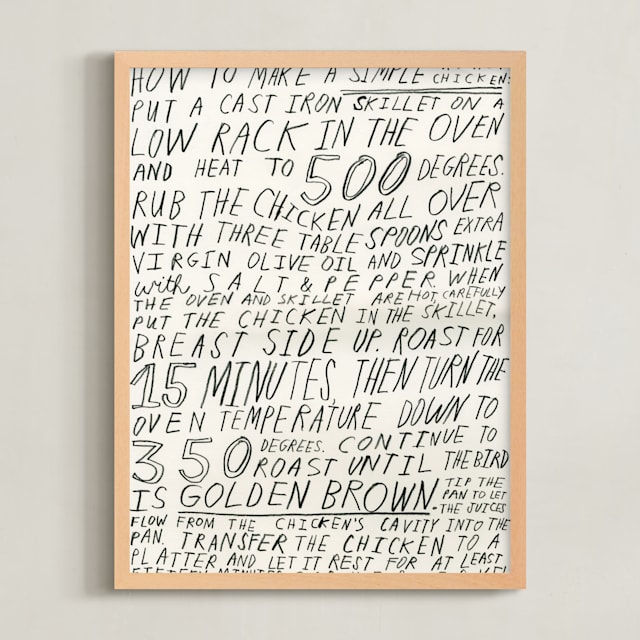 HOW TO MAKE A SIMPLE
CHICKEN:
PUT A CAST IRON SKILLET ON A
LOW RACK IN THE OVEN
AND HEAT TO 500 DEGREES.
RUB THE CHICKEN ALL OVER
WITH THREE TABLESPOONS EXTRA
VIRGIN OLIVE OIL AND SPRINKLE
with SALT & PEPPER. WHEN
THE OVEN AND SKILLET ARE HOT, CAREFULLY
PUT THE CHICKEN IN THE SKILLET,
BREAST SIDE UP. ROAST FOR
15 MINUTES, THEN TURN THE
OVEN TEMPERATURE DOWN TO
350 DEGREES. CONTINUE TO
ROAST UNTIL THE BIRD
IS GOLDEN BROWN.
TIP THE
PAN TO LET
THE JUICES
FLOW FROM THE CHICKEN'S CAVITY INTO THE
PAN. TRANSFER THE CHICKEN TO A
PLATTER AND LET IT REST FOR AT LEAST
FIFTEEN MINUTES